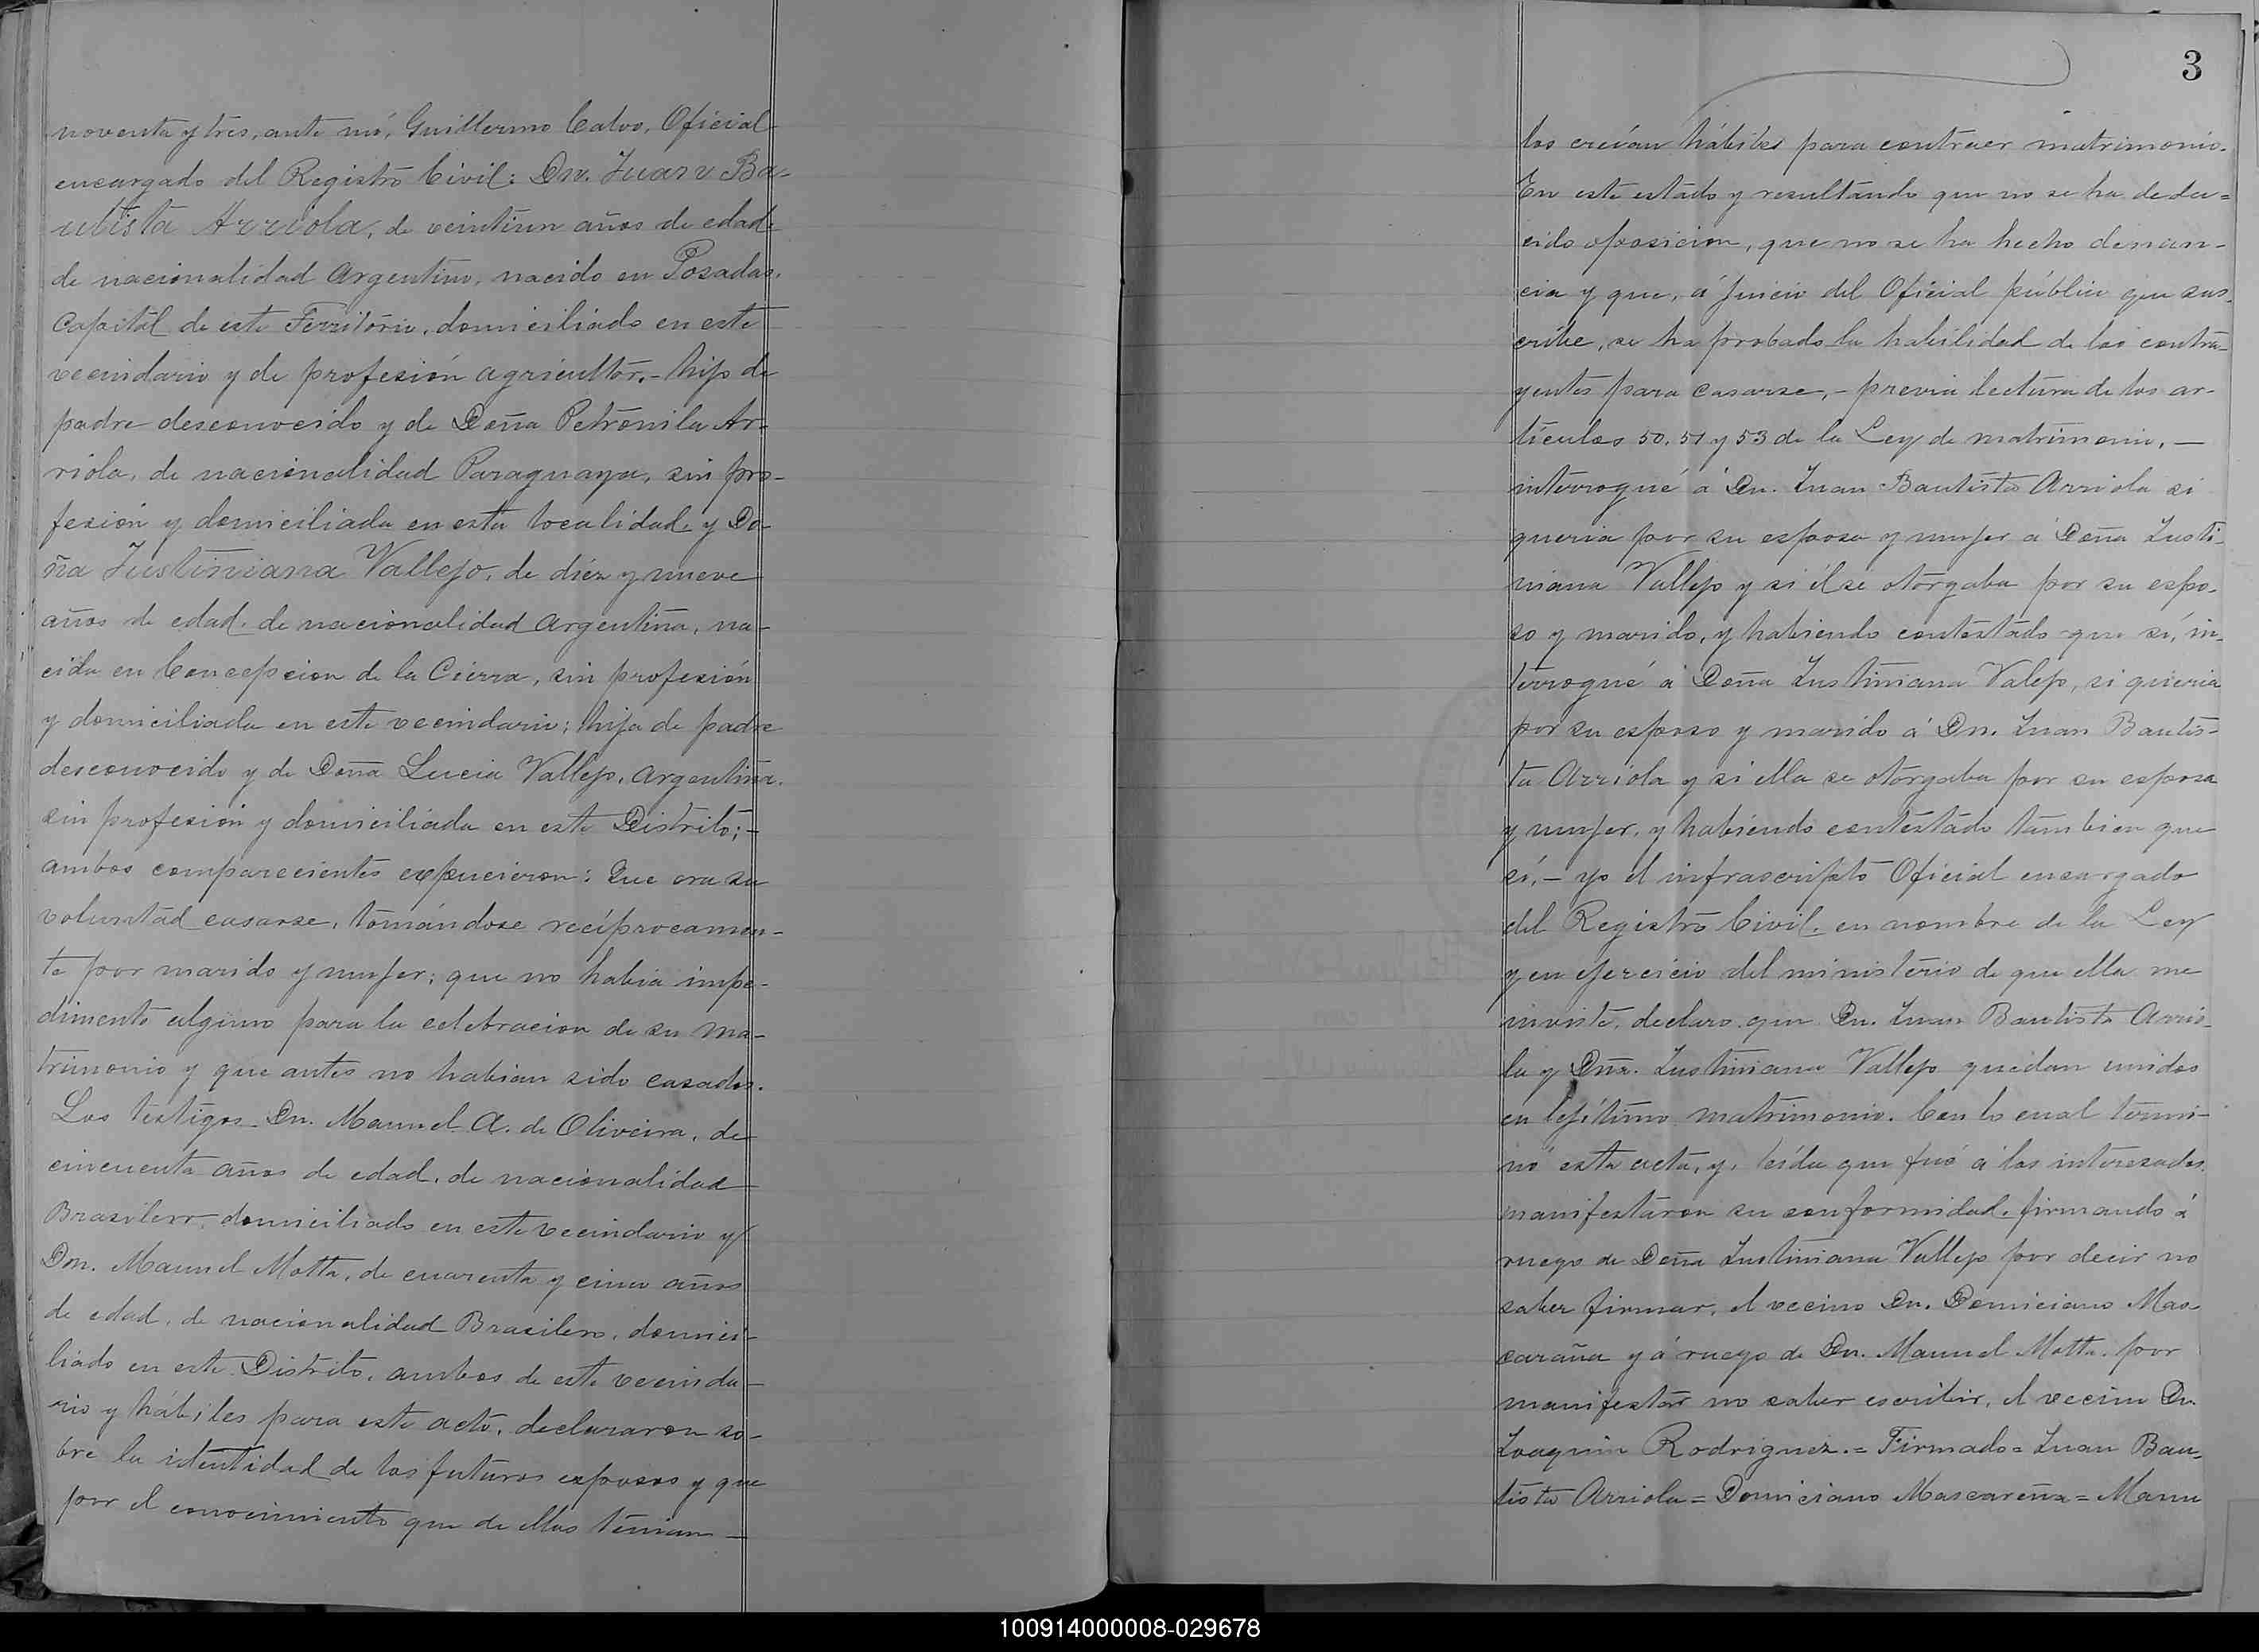 noventa y tres, ante mí, Guillermo Calvo, Oficial
encargado del Registro Civil: Dn. Juan Ba-
utista Arriola, de veintiun años de edad
de nacionalidad Argentino, nacido en Posadas,
Capital de este Territorio, domiciliado en este
vecindario y de profesión agricultor,- hijo de
padre desconocido y de Doña Petronila Ar-
riola, de nacionalidad Paraguaya, sin pro-
fesión y domiciliada en esta localidad, y Do-
ña Justiniana Vallejo, de diéz y nueve
años de edad, de nacionalidad Argentina, na-
cida en Concepcion de la Cierra, sin profesión
y domiciliada en este vecindario; hija de padre
desconocido y de Doña Lucia Vallejo, Argentina.
sin profesión y domiciliada en este Distrito;-
ambos comparecientes expucieron: Que era su
voluntad casarse, tomándose recíprocamen-
te por marido y mujer; que no habia impe-
dimento alguno para la celebracion de su ma-
trimonio y que antes no habian sido casados.
Los testigos Dn. Manuel A. de Oliveira, de
cincuenta años de edad, de nacionalidad
Brasilero, domiciliado en este vecindario y
Don. Manuel Motta, de cuarenta y cinco años
de edad, de nacionalidad Brasilero, domici-
liado en este Distrito, ambos de este vecinda-
rio y hábiles para este acto, declararon so-
bre la identidad de los futuros esposos y que
por el conocimiento que de ellos tenian -
3
los creían hábiles para contraer matrimonio.
En este estado y resultando que no se ha dedu=
cido oposicion, que no se ha hecho denun-
cia y que, á juicio del Oficial público que sus-
cribe, se ha probado la habilidad de los contra-
yentes para casarse,- previa lectura de los ar-
tículos 50, 51 y 53 de la Ley de matrimonio, -
interrogué á Dn. Juan Bautista Arriola si
queria por su esposa y mujer á Doña Justi-
niana Vallejo y si él se otorgaba por su espo-
so y marido, y habiendo contestado que sí, in-
terrogué á Doña Justiniana Valejo, si quieria
por su esposo y marido á Dn. Juan Bautis-
ta Arriola y si ella se otorgaba por su esposa
y mujer, y habiendo contestado tambien que
sí,- yo el infrascripto Oficial encargado
del Registro Civil, en nombre de la Ley
y en ejercicio del ministerio de que ella me
inviste, declaro que Dn. Juan Bautista Arrio-
la y Dña. Justiniana Vallejo quedan unidos
en lejítimo matrimonio. Con lo cual termi-
nó esta acta, y, leída que fué á los interesados,
manifestaron su conformidad, firmando á
ruego de Doña Justiniana Vallejo por decir no
saber firmar, el vecino Dn. Domiciano Mas-
caraña y á ruego de Dn. Manuel Motta por
manifestar no saber escribir, el vecino Dn.
Joaquin Rodriguez.= Firmado= Juan Bau-
tista Arriola= Domiciano Mascareña= Manu
100914000008-029678